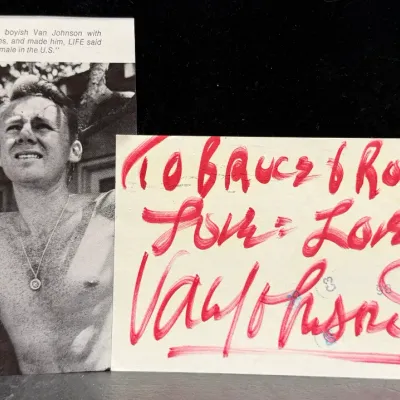 boyish Van Johnson with
and made him, LIFE said
male in the U.S."
TO BRUCE & RO
Love = Love
Van Johnson